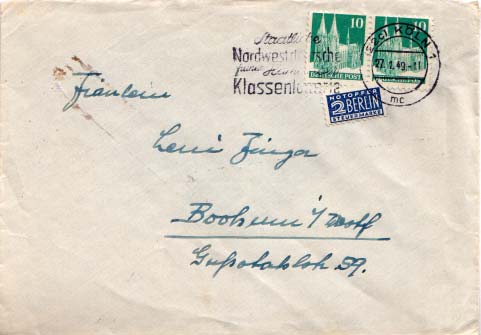 Staatliche
Nordwestdeutsche
Klassenlotterie
10
10
DEUTSCHE POST
KÖLN 1
27.1.49.-11
mc
NOTOPFER
2 BERLIN
STEUERMARKE
Fräulein
Leni Zinger
Bochum i/Westf
29.